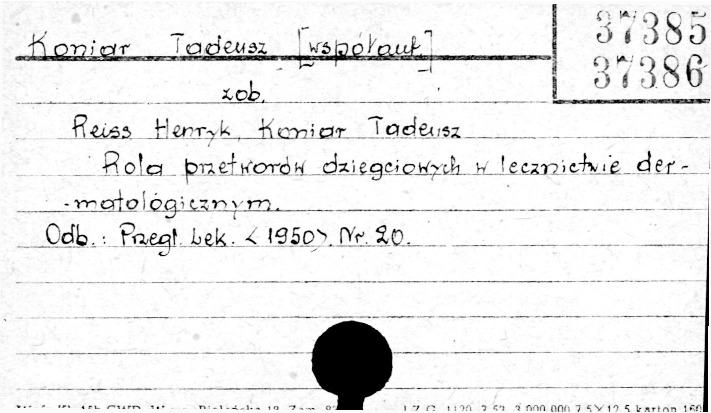 Koniar Tadeusz [współaut.]
37385
37386
zob.
Reiss Henryk, Koniar Tadeusz
Rola przetworów dziegciowych w lecznictwie der-
-matologicznym.
Odb.: Przegl. Lek. <1950>. Nr. 20.
3.000.000 7,5×12,5 karton 160